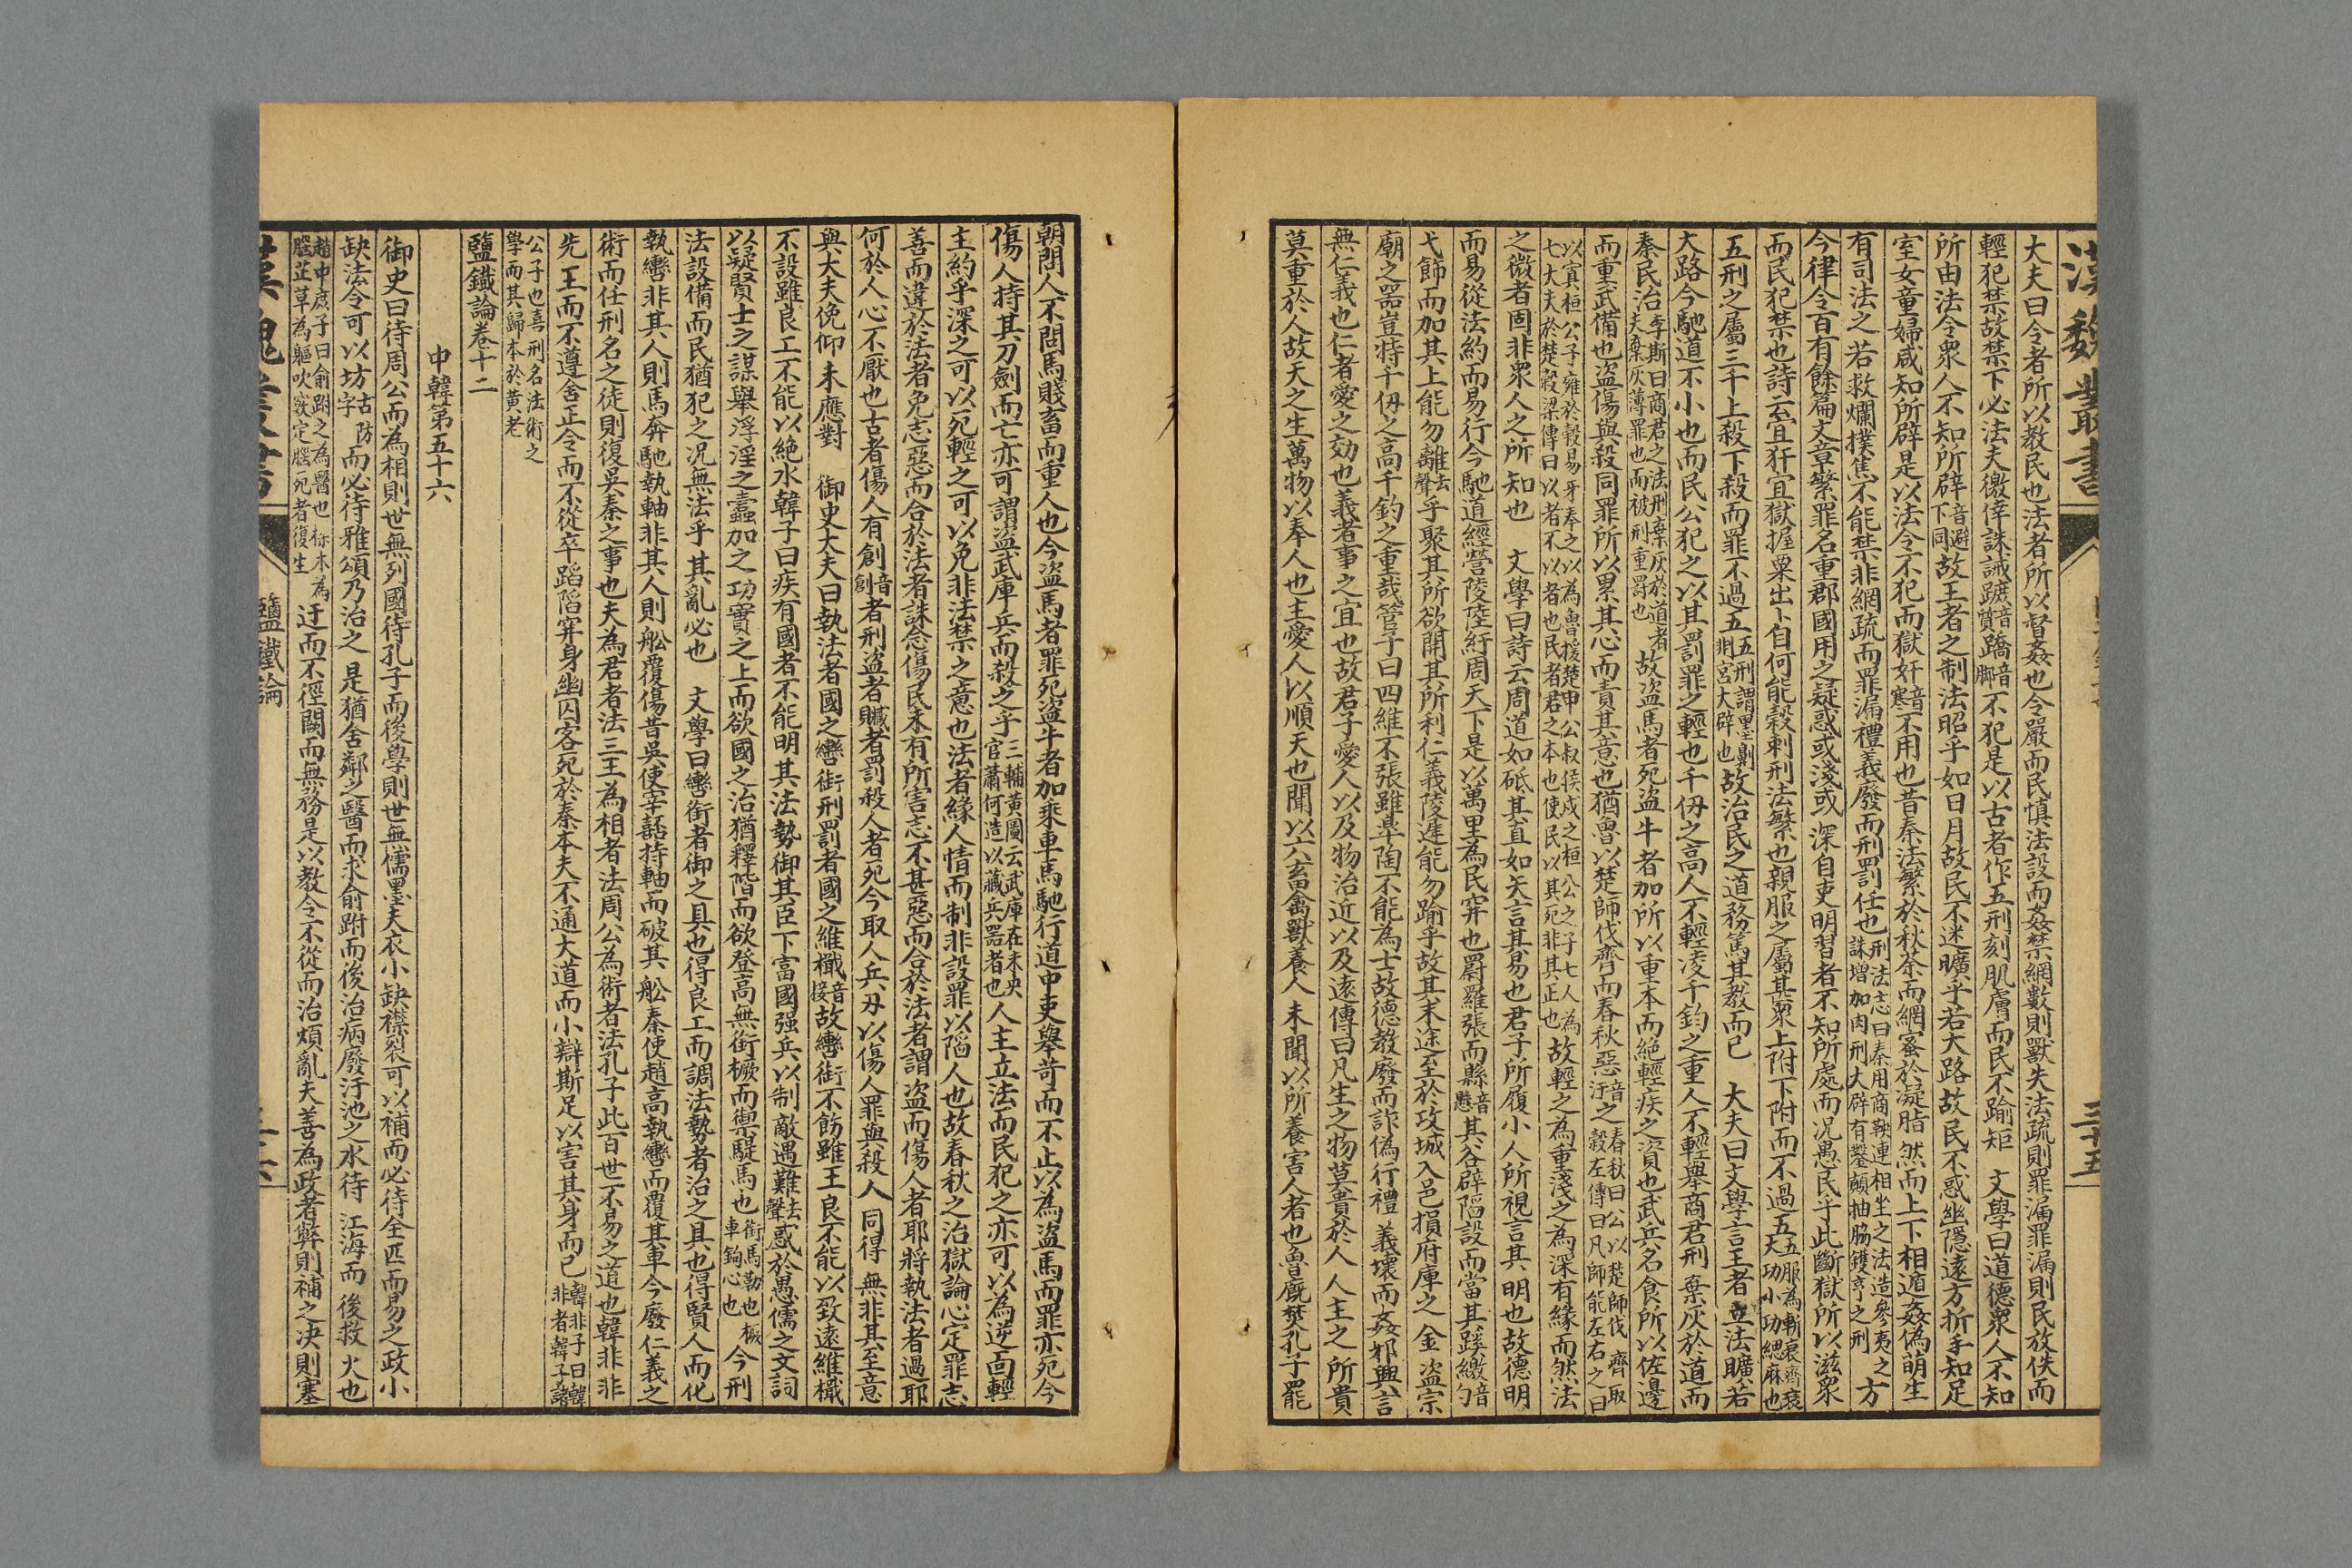 漢魏叢書
三十五
大夫曰令者所以教民也法者所以督姦也令嚴而民慎法設而姦禁網數則獸失法疏則罪漏罪漏則民放佚而
輕犯禁故禁下必法夫徼倖誅誡蹠音質蹻音脚不犯是以古者作五刑刻肌膚而民不踰矩　文學曰道德衆人不知
所由法令衆人不知所辟音避下同故王者之制法昭乎如日月故民不迷曠乎若大路故民不惑幽隱遠方折手知足
室女童婦咸知所辟是以法令不犯而獄犴音寒不用也昔秦法繁於秋荼而網密於凝脂然而上下相遁姦偽萌生
有司法之若救爛撲焦不能禁非網疏而罪漏禮義廢而刑罰任也刑法志曰秦用商鞅連相坐之法造參夷之誅增加肉刑大辟有鑿顛抽脇鑊亨之刑方
今律令百有餘篇文章繁罪名重郡國用之疑惑或淺或深自吏明習者不知所處而况愚民乎此斷獄所以滋衆
而民犯禁也詩云宜犴宜獄握粟出卜自何能穀刺刑法繁也親服之屬甚衆上附下附而不過五五服為斬衰齊衰大功小功緦麻也
五刑之屬三千上殺下殺而罪不過五五刑謂墨劓剕宮大辟也故治民之道務篤其教而已　大夫曰文學言王者立法曠若
大路今馳道不小也而民公犯之以其罰罪之輕也千仞之高人不輕凌千鈞之重人不輕舉商君刑棄灰於道而
秦民治李斯曰商君之法刑棄灰於道者夫棄灰薄罪也而被刑重罰也故盜馬者死盜牛者加所以重本而絕輕疾之資也武兵名食所以佐邊
而重武備也盜傷與殺同罪所以累其心而責其意也猶魯以楚師伐齊而春秋惡音汙之春秋曰公以楚師伐齊取穀左傳曰凡師能左右之曰
以寘桓公子雍於穀易牙奉之以為魯援楚申公叔侯戍之桓公之子七人為七大夫於楚穀梁傳曰以者不以者也民者君之本也使民以其死非其正也故輕之為重淺之為深有緣而然法
之微者固非衆人之所知也　文學曰詩云周道如砥其直如矢言其易也君子所履小人所視言其明也故德明
而易從法約而易行今馳道經營陵陸紆周天下是以萬里為民穽也罻羅張而縣音懸其谷辟陷設而當其蹊繳音勺
弋飾而加其上能勿離去聲乎聚其所欲開其所利仁義陵遲能勿踰乎故其末途至於攻城入邑損府庫之金盜宗
廟之器豈特千仞之高千鈞之重哉管子曰四維不張雖臯陶不能為士故德教廢而詐偽行禮義壞而姦邪興言
無仁義也仁者愛之効也義者事之宜也故君子愛人以及物治近以及遠傳曰凡生之物莫貴於人人主之所貴
莫重於人故天之生萬物以奉人也主愛人以順天也聞以六畜禽獸養人未聞以所養害人者也魯廐焚孔子罷
朝問人不問馬賤畜而重人也今盜馬者罪死盜牛者加乘車馬馳行道中吏舉苛而不止以為盜馬而罪亦死今
傷人持其刀劍而亡亦可謂盜武庫兵而殺之乎三輔黃圖云武庫在未央官蕭何造以藏兵器者也人主立法而民犯之亦可以為逆面輕
主約乎深之可以死輕之可以免非法禁之意也法者緣人情而制非設罪以陷人也故春秋之治獄論心定罪志
善而違於法者免志惡而合於法者誅念傷民未有所害志不甚惡而合於法者謂盜而傷人者耶將執法者過耶
何於人心不厭也古者傷人有創音創者刑盜者臟者罰殺人者死今取人兵刃以傷人罪與殺人同得無非其至意
與大夫俛仰未應對　御史大夫曰執法者國之轡銜刑罰者國之維檝音接故轡銜不飭雖王良不能以致遠維檝
不設雖良工不能以絕水韓子曰疾有國者不能明其法勢御其臣下富國强兵以制敵遇難去聲惑於愚儒之文詞
以疑賢士之謀舉浮淫之蠹加之功實之上而欲國之治猶釋階而欲登高無銜橛而禦駻馬也銜馬勒也橛車鉤心也今刑
法設備而民猶犯之况無法乎其亂必也　文學曰轡銜者御之具也得良工而調法勢者治之具也得賢人而化
執轡非其人則馬奔馳執軸非其人則舩覆傷昔吳使宰嚭持軸而破其舩秦使趙高執轡而覆其車今廢仁義之
術而任刑名之徒則復吳秦之事也夫為君者法三王為相者法周公為術者法孔子此百世不易之道也韓非非
先王而不遵舍正令而不從卒蹈陷穽身幽囚客死於秦本夫不通大道而小辯斯足以害其身而已韓非子曰韓非者韓子諸
公子也喜刑名法術之學而其歸本於黃老
鹽鐵論卷十二
中韓第五十六
御史曰待周公而為相則世無列國待孔子而後學則世無儒墨夫衣小缺襟裂可以補而必待全匹而易之政小
缺法令可以坊古防字而必待雅頌乃治之是猶舍鄰之醫而求俞跗而後治病廢汙池之水待江海而後救火也
趙中庶子曰俞跗之為醫也榒木為腦芷草為軀吹竅定腦死者復生迂而不徑闕而無務是以教令不從而治煩亂夫善為政者弊則補之決則塞
漢魏叢書
鹽鐵論
三十六